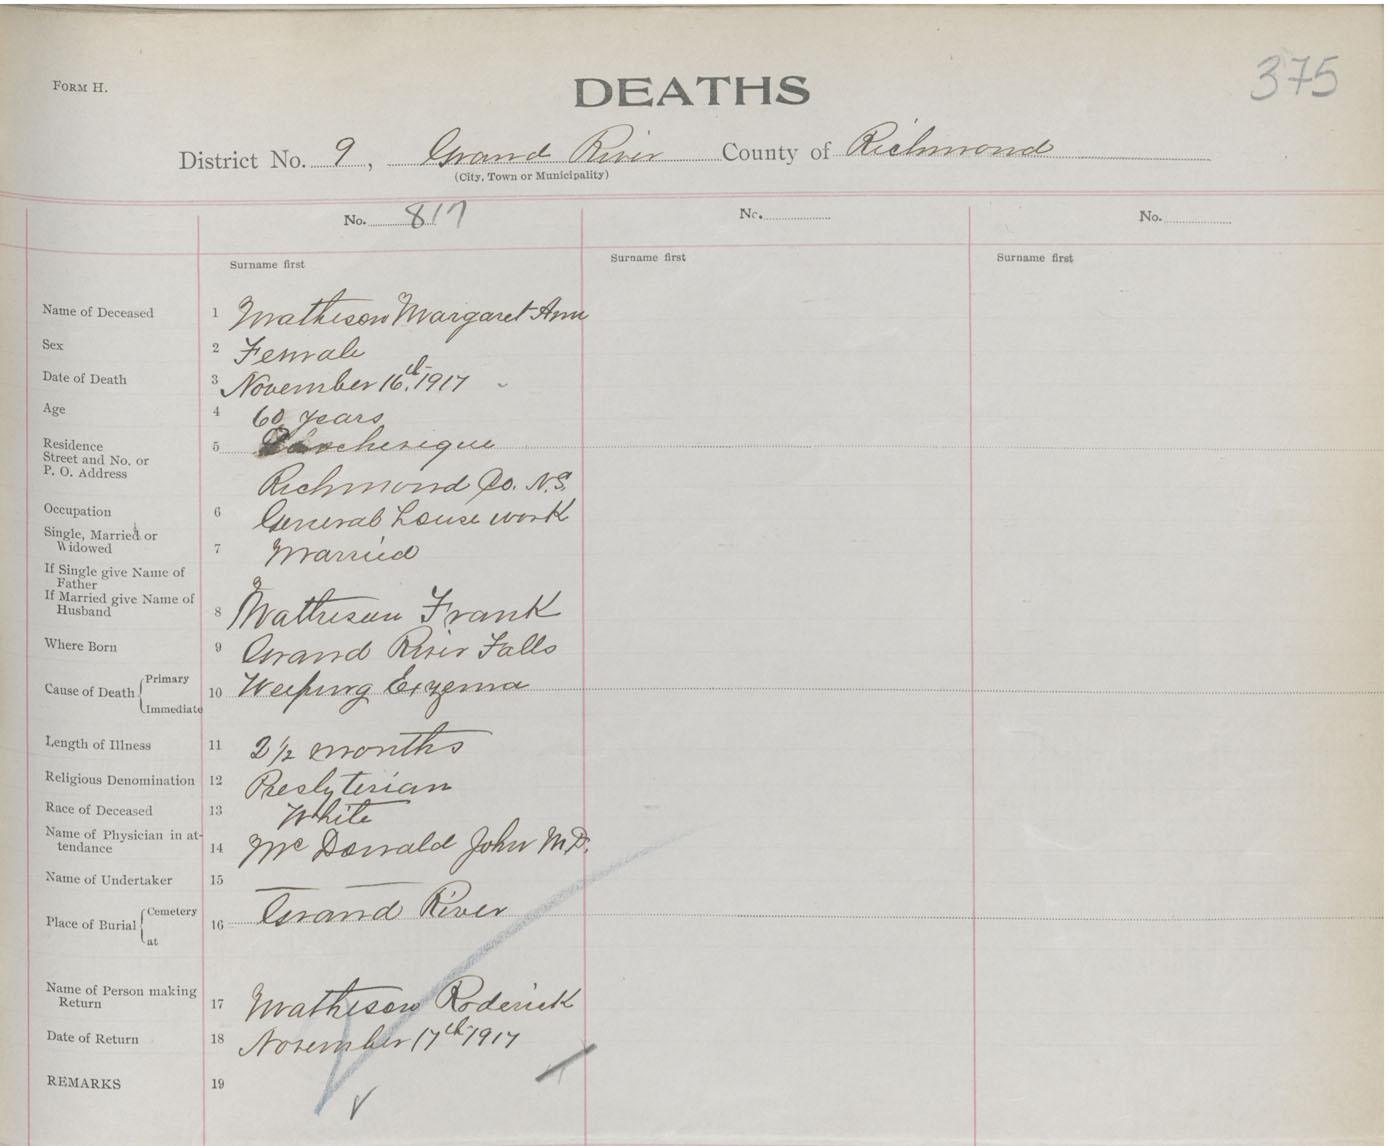 FORM H.
DEATHS
375
District No. 9, Grand River County of Richmond
(City, Town or Municipality)
No. 817 No. No.
Surname first Surname first Surname first
Name of Deceased 1 Matheson Margaret Ann
Sex 2 Female
Date of Death 3 November 16th 1917
Age 4 60 years
Residence
Street and No. or
P. O. Address
5
Richmond Co. N.S.
Occupation 6 General house work
Single, Married or
Widowed 7 Married
If Single give Name of
Father
If Married give Name of
Husband 8 Matheson Frank
Where Born 9 Grand River Falls
Cause of Death Primary
Immediate
10 Weeping Exzema
Length of Illness 11 2 1/2 months
Religious Denomination 12 Presbyterian
Race of Deceased 13 White
Name of Physician in at-
tendance 14 Mc Donald John M.D.
Name of Undertaker 15 — —
Place of Burial Cemetery
at
16 Grand River
Name of Person making
Return 17 Matheson Roderick
Date of Return 18 November 17th 1917
REMARKS 19